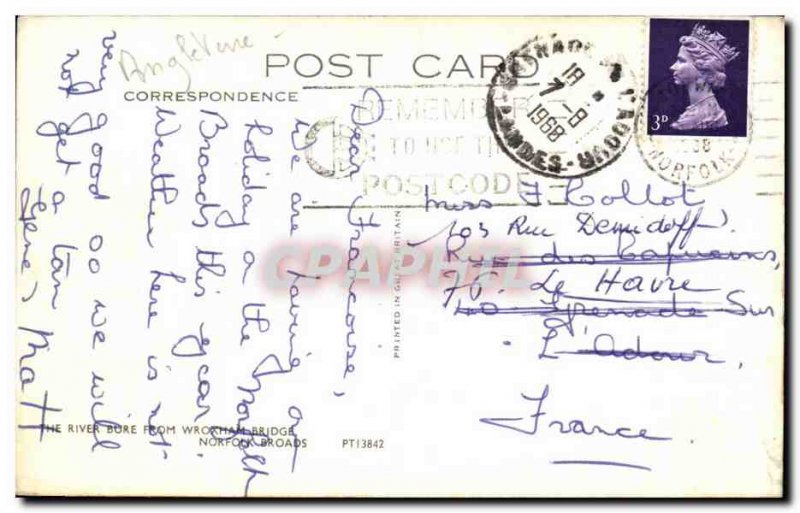 Angleterre
POST CARD
CORRESPONDENCE
Dear Francoise,
We are having a
holiday on the Norfolk
Broads this year.
Weather here is not
very good so we will
not get a tan
here, Matt
THE RIVER BURE FROM WROXHAM BRIDGE
NORFOLK BROADS PT13842
PRINTED IN GREAT BRITAIN
REMEMBER
TO USE THE
POST CODE
GRENADE SUR L'ADOUR
18
7-8
1968
LANDES
NORFOLK
3D
Miss F Collot
103 Rue Demidoff
Rue des Capucins,
76. Le Havre
40 Grenade Sur
L'Adour,
France.
CPAPHIL